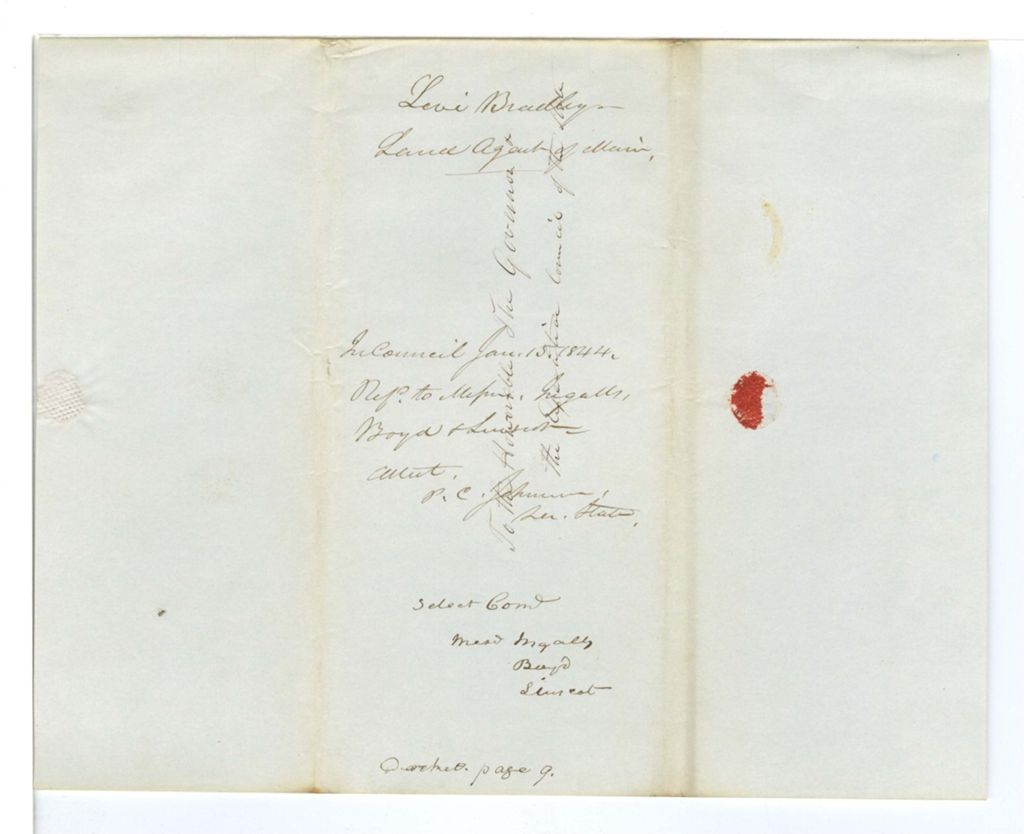 Levi Bradley
Land Agent of Maine,
To the Honorable The Governor
the Executive Council of the
In Council Jan. 15. 1844.
Refd. to Messrs. Ingalls,
Boyd & Linscot
Attest,
P. C. Johnson,
Sec. State,
Select Comd
Messrs Ingalls
Boyd
Linscot
Docket. page 9.